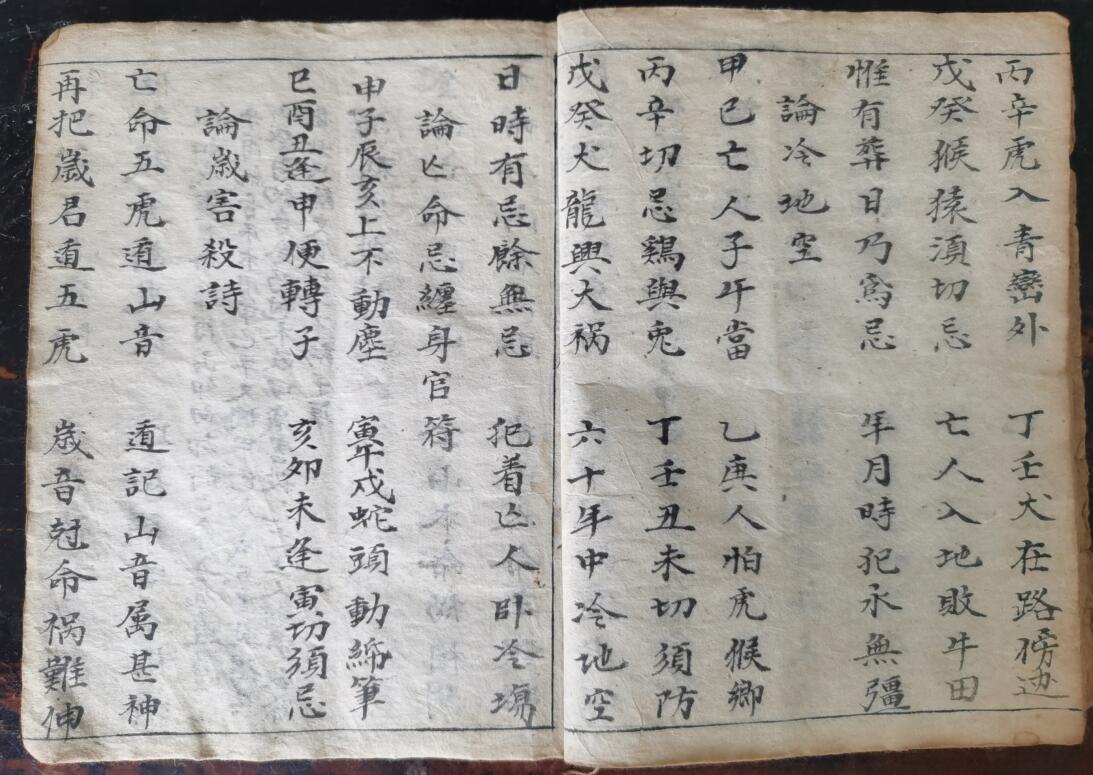 丙辛虎入青巒外 丁壬犬在路傍边
戊癸猴猿湏切忌 亡人入地敗牛田
惟有葬日乃爲忌 年月時犯永無彊
論冷地空
甲己亡人子午當 乙庚人怕虎猴鄉
丙辛切忌鷄與兎 丁壬丑未切須防
戊癸犬龍興大禍 六十年中冷地空
日時有忌餘無忌 犯着亡人卧冷塲
論亡命忌纏身官符
申子辰亥上不動塵 寅午戌蛇頭動筆
巳酉丑逢申便轉子 亥卯未逢寅切須忌
論歲害殺詩
亡命五虎遁山音 遁記山音属甚神
再把歲君遁五虎 歲音尅命禍難伸